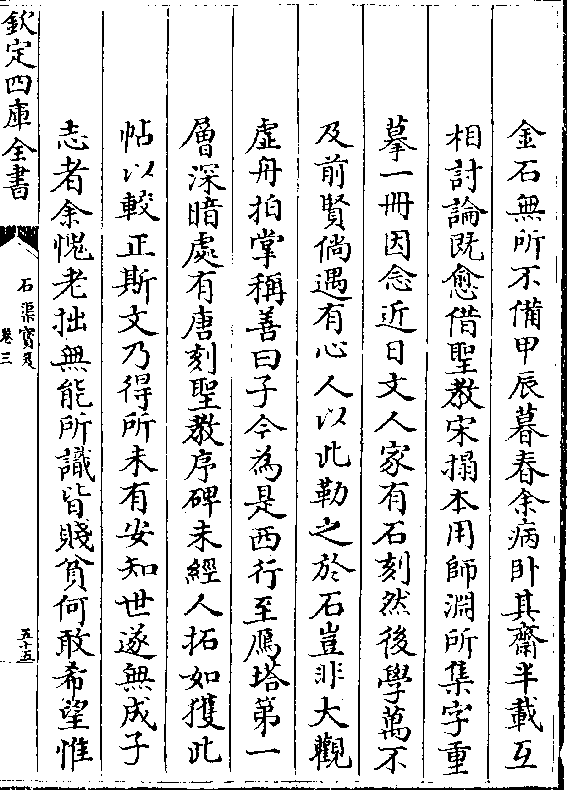 金石無所不備甲辰暮春余病卧其齋半載互
相討論既愈借聖教宋搨本用師淵所集字重
摹一冊因念近日文人家有石刻然後學萬不
及前賢倘遇有心人以此勒之於石豈非大觀
虚舟拍掌稱善曰子今為是西行至鴈塔第一
層深暗處有唐刻聖教序碑未經人拓如獲此
帖以較正斯文乃得所未有安知世遂無成子
志者余愧老拙無能所識皆賤貧何敢希望惟
欽定四庫全書
石渠寳笈
卷三
五十五